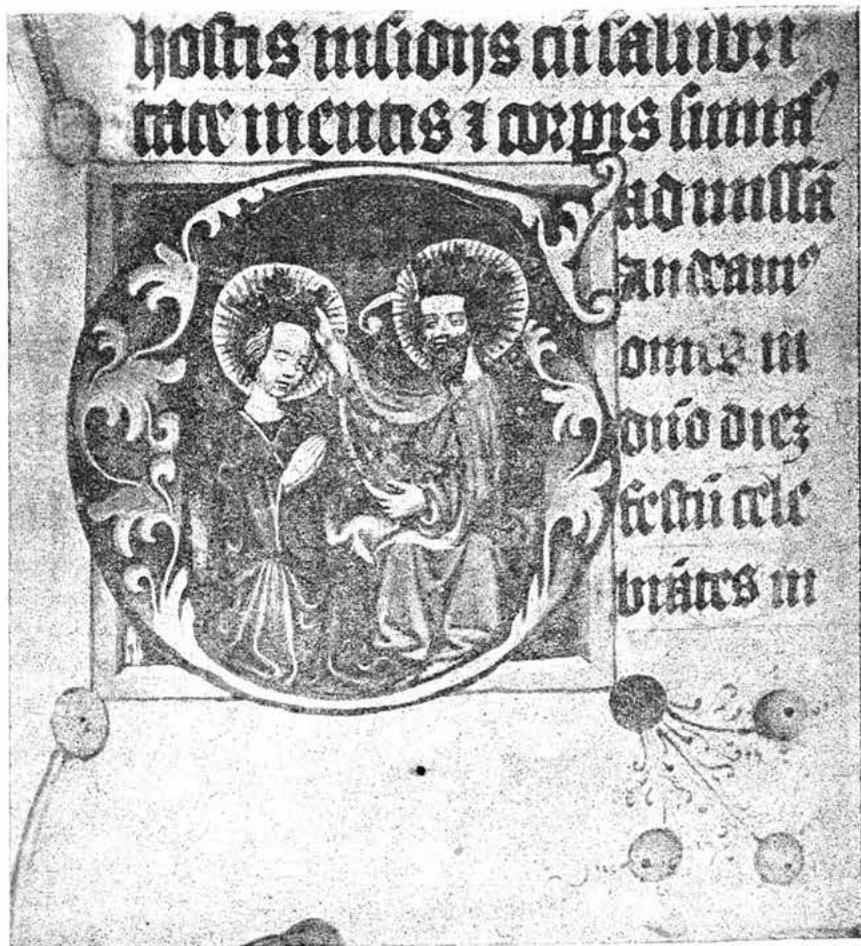 hostis insidijs cū salubri
tate mentis ⁊ corpis summa
ad missā
audeamꝰ
omēs in
dño diez
festū cele
brātes in